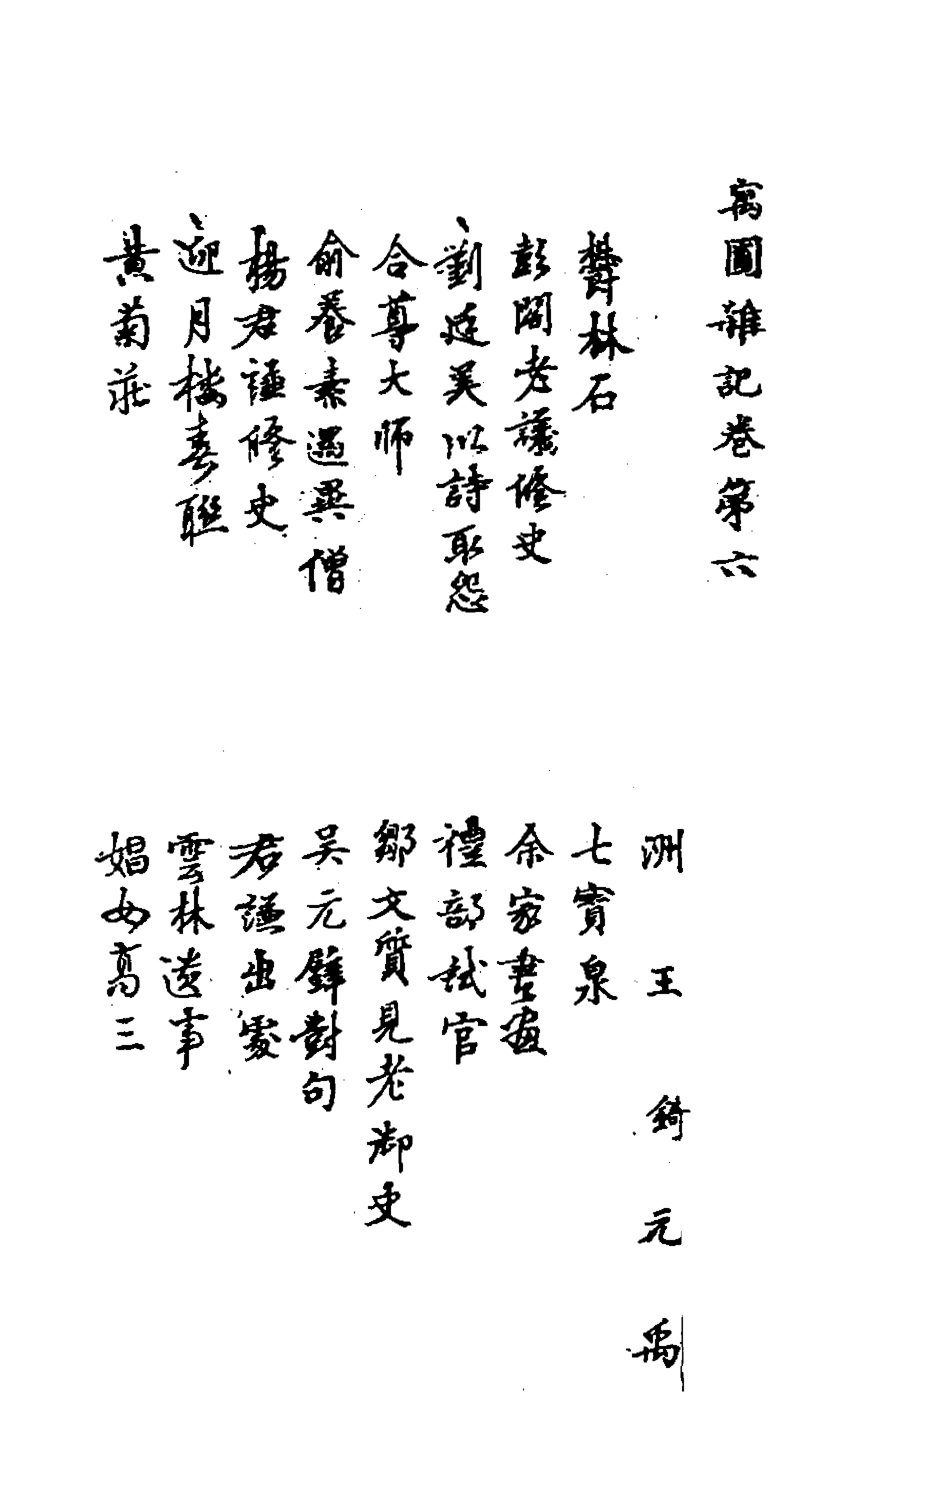 寓圃雜記卷第六
洲王錡元禹
鬱林石
七寶泉
彭閣老議修史
余家書畫
劉廷美以詩取怨
禮部試官
合尊大師
鄒文質見老御史
俞養素遇異僧
吴元璧對句
楊君謙修史
君謙出處
迎月樓春聯
雲林遺事
黄菊莊
娼女高三